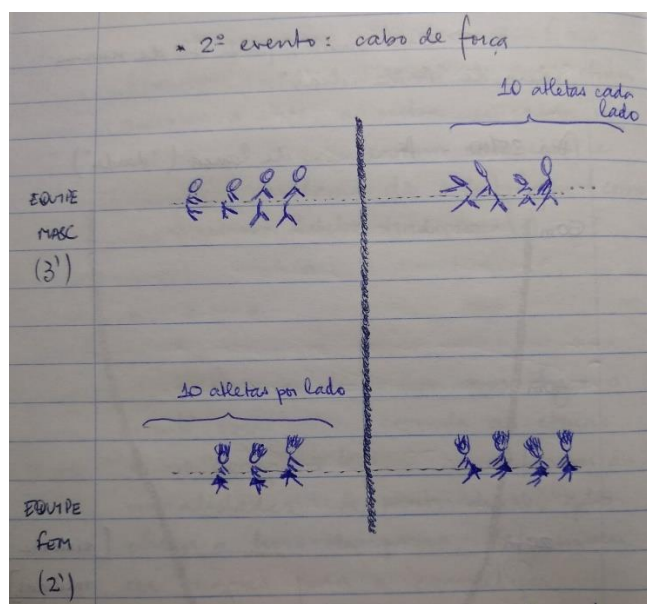 * 2º evento: cabo de força
10 atletas cada
lado
EQUIPE
MASC
(3')
...
10 atletas por lado
EQUIPE
FEM
(2')